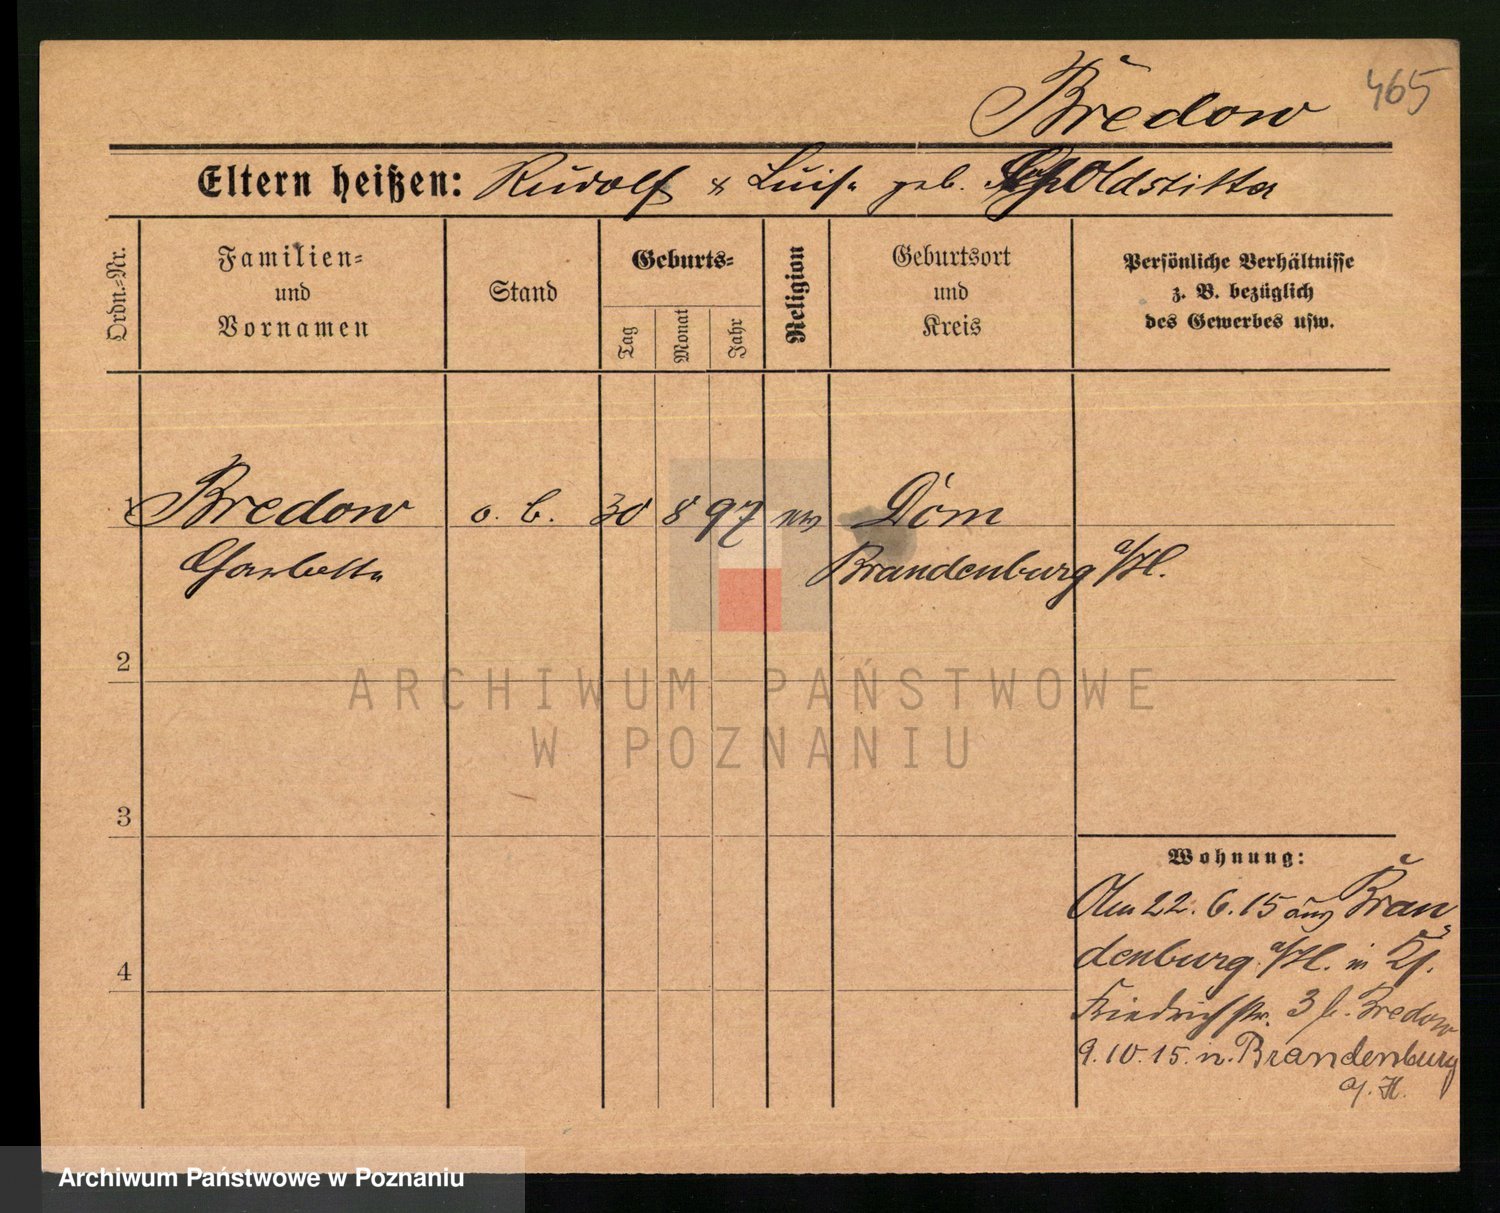 465
Bredow
Eltern heißen: Rudolf & Luise geb. Goldstikker
Ordn.-Nr.
Familien-
und
Vornamen
Stand
Geburts-
Tag
Monat
Jahr
Religion
Geburtsort
und
Kreis
Persönliche Verhältnisse
z. B. bezüglich
des Gewerbes usw.
1 Bredow o. b. 30 8 97 ev Dom
Brandenburg a/H.
2
ARCHIWUM PAŃSTWOWE
W POZNANIU
3
4
Wohnung:
Am 22. 6. 15 aus Bran-
denburg a/H. in
Friedrichstr. 3 b. Bredow
9. 10. 15. n. Brandenburg
a/. H.
Archiwum Państwowe w Poznaniu